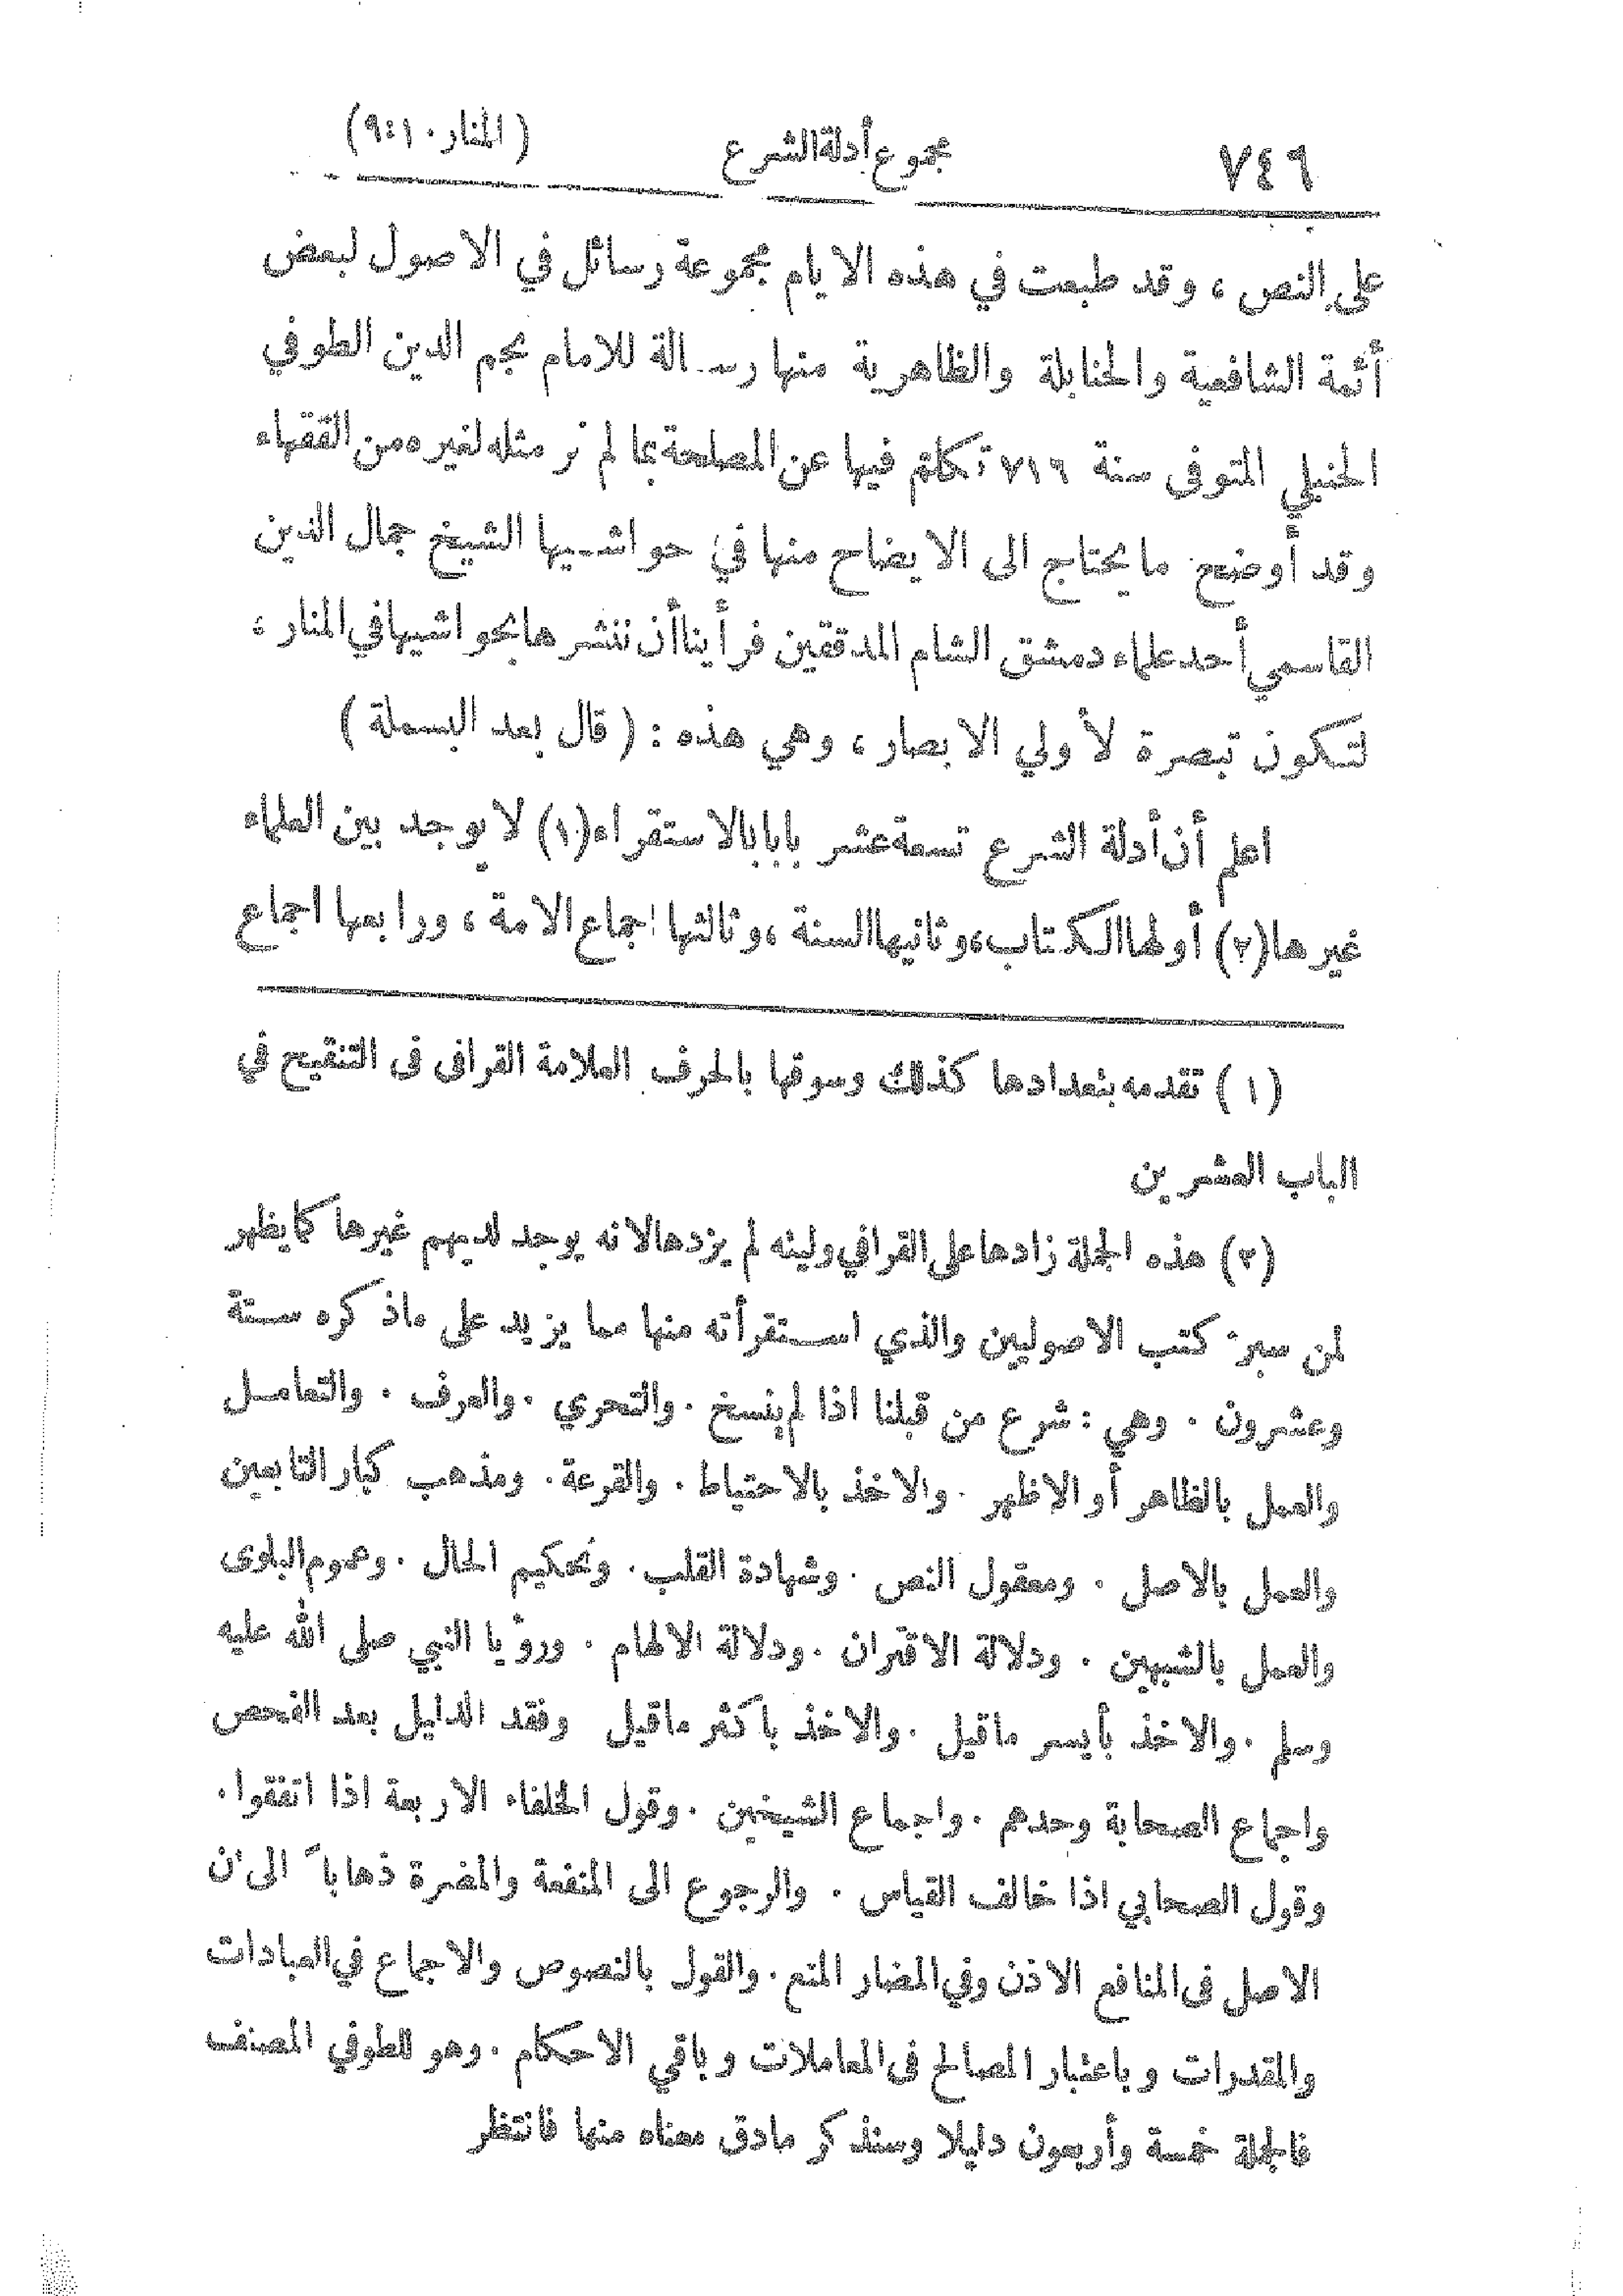 ٧٤٦ مجموع أدلة الشرع (المنار ١٠:٩)
على النص ، وقد طبعت في هذه الايام مجموعة رسائل في الاصول لبعض
أئمة الشافعية والحنابلة والظاهرية منها رسالة للامام نجم الدين الطوفي
الحنبلي المتوفى سنة ٧١٦ تكلم فيها عن المصلحة بما لم نر مثله لغيره من الفقهاء
وقد أوضح ما يحتاج الى الايضاح منها في حواشيها الشيخ جمال الدين
القاسمي أحد علماء دمشق الشام المدققين فرأينا أن ننشرها بحواشيها في المنار ،
لتكون تبصرة لأولي الابصار ، وهي هذه : ( قال بعد البسملة )
اعلم أن أدلة الشرع تسعة عشر بابا بالاستقراء (١) لا يوجد بين العلماء
غيرها (٢) أولها الكتاب ، وثانيها السنة ، وثالثها إجماع الامة ، ورابعها اجماع
(١) تقدمه بتعدادها كذلك وسوقها بالحرف العلامة القرافى فى التنقيح في
الباب العشرين
(٢) هذه الجملة زادها على القرافي وليته لم يزدها لانه يوجد لديهم غيرها كما يظهر
لمن سبر كتب الاصوليين والذي استقرأته منها مما يزيد على ماذكره ستة
وعشرون . وهي : شرع من قبلنا اذا لم ينسخ . والتحري . والعرف . والتعامل
والعمل بالظاهر أو الاظهر . والاخذ بالاحتياط . والقرعة . ومذهب كبار التابعين
والعمل بالاصل . ومعقول النص . وشهادة القلب . وتحكيم الحال . وعموم البلوى
والعمل بالشبهين . ودلالة الاقتران . ودلالة الالهام . ورؤيا النبي صلى الله عليه
وسلم . والاخذ بأيسر ماقيل . والاخذ بأكثر ماقيل وفقد الدليل بعد الفحص
واجماع الصحابة وحدهم . واجماع الشيخين . وقول الخلفاء الاربعة اذا اتفقوا .
وقول الصحابي اذا خالف القياس . والرجوع الى المنفعة والمضرة ذهاباً الى أن
الاصل فى المنافع الاذن وفي المضار المنع . والقول بالنصوص والاجماع في العبادات
والمقدرات وباعتبار المصالح فى المعاملات وباقي الاحكام . وهو للطوفي المصنف
فالجملة خمسة وأربعون دليلا وسنذكر مادق معناه منها فانتظر